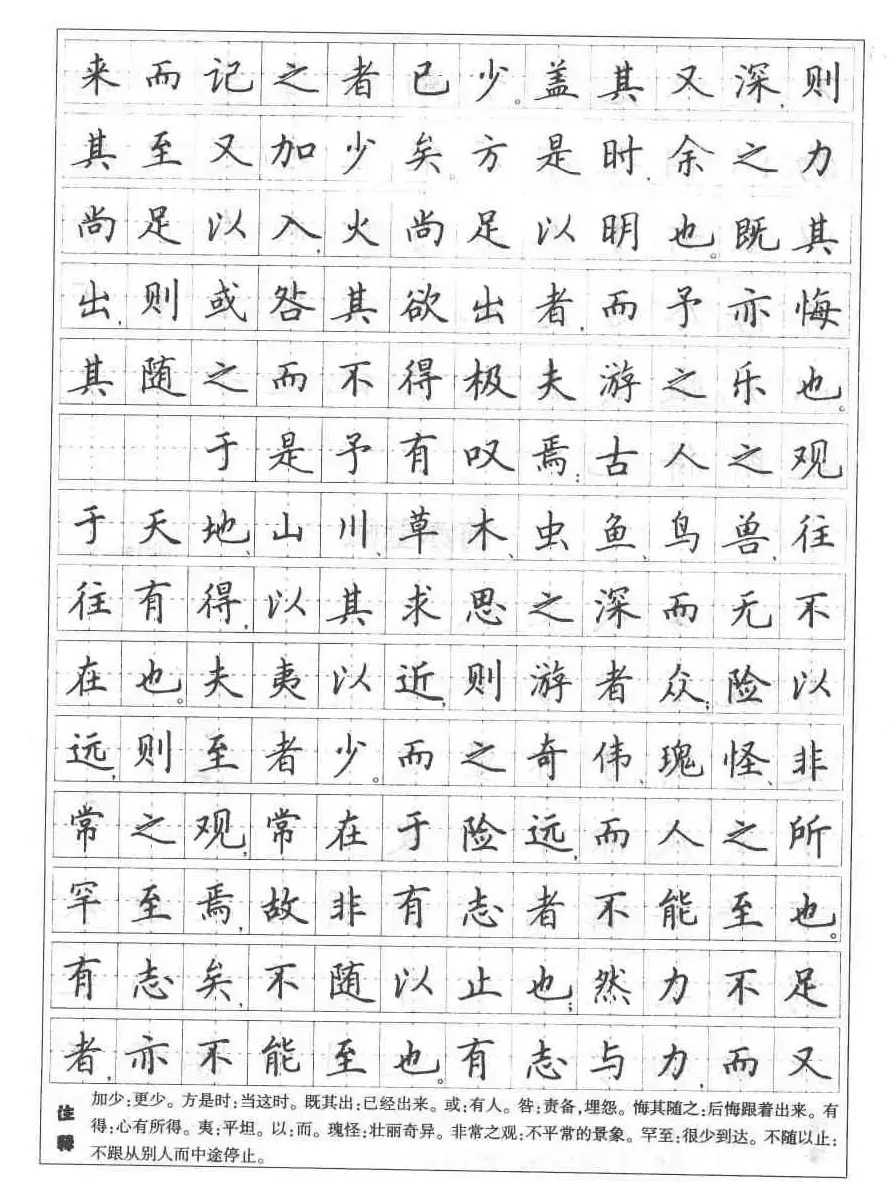 来而记之者已少。盖其又深,则
其至又加少矣。方是时,余之力
尚足以入,火尚足以明也。既其
出,则或咎其欲出者,而予亦悔
其随之而不得极夫游之乐也。
于是予有叹焉:古人之观
于天地、山川、草木、虫鱼、鸟兽,往
往有得,以其求思之深而无不
在也。夫夷以近,则游者众;险以
远,则至者少。而之奇伟、瑰怪、非
常之观,常在于险远,而人之所
罕至焉,故非有志者不能至也。
有志矣,不随以止也;然力不足
者,亦不能至也。有志与力,而又
注释
加少:更少。方是时:当这时。既其出:已经出来。或:有人。咎:责备,埋怨。悔其随之:后悔跟着出来。有
得:心有所得。夷:平坦。以:而。瑰怪:壮丽奇异。非常之观:不平常的景象。罕至:很少到达。不随以止:
不跟从别人而中途停止。